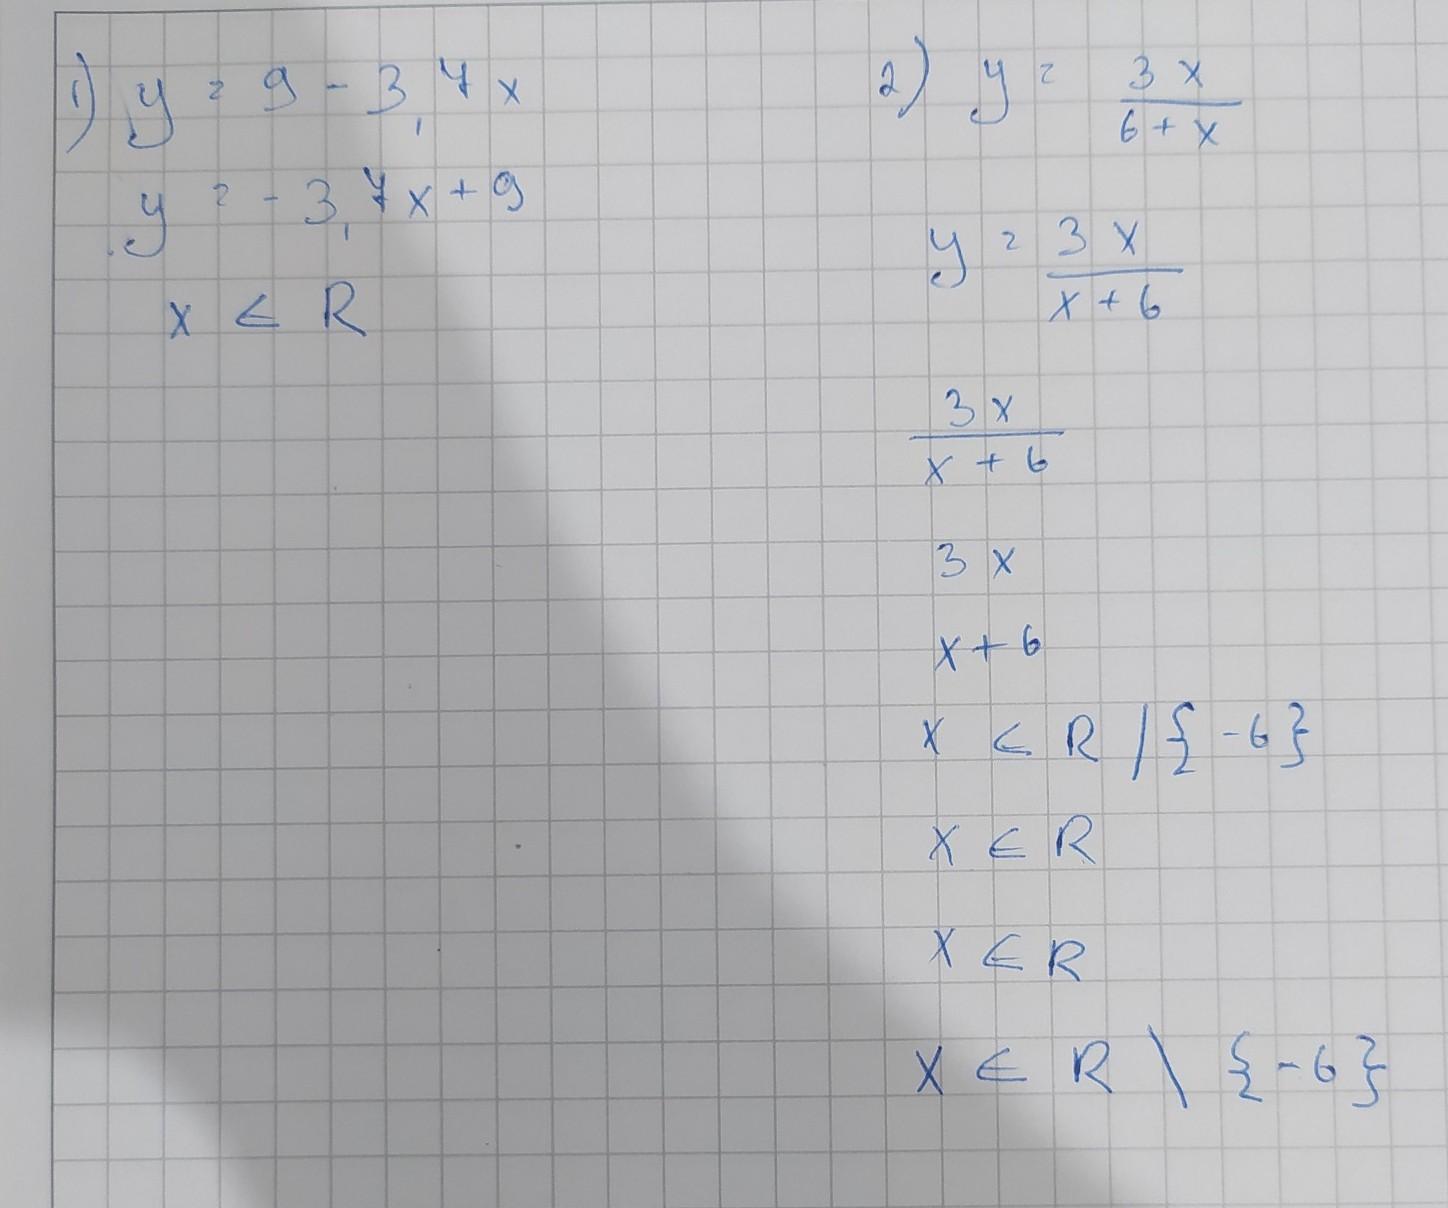 1) y = 9 - 3,7x
y = -3,7x + 9
x ∈ R
2) y = 3x / (6 + x)
y = 3x / (x + 6)
3x / (x + 6)
3x
x + 6
x ∈ R / {-6}
x ∈ R
x ∈ R
x ∈ R \ {-6}